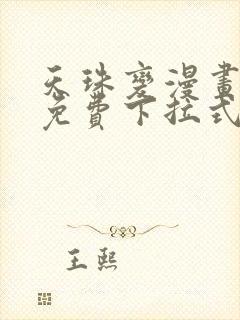 天珠變漫畫
免費下拉式
王熙